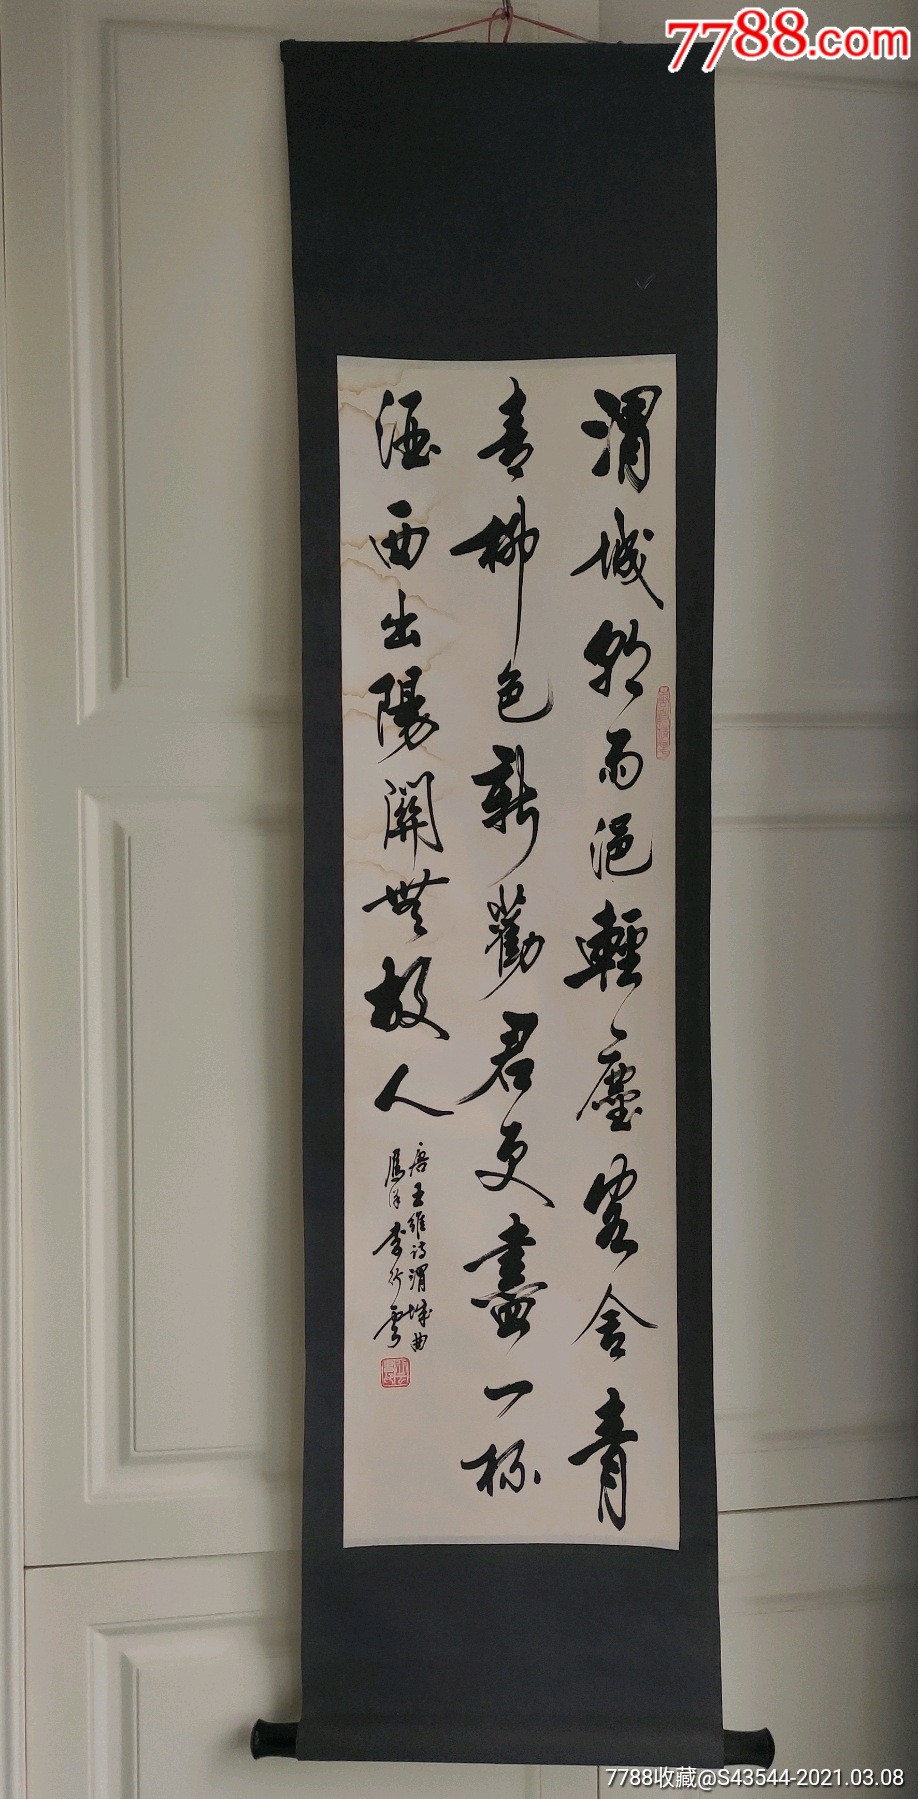 7788.com
渭城朝雨浥輕塵客舍青
青柳色新勸君更盡一杯
酒西出陽關無故人
唐王維詩渭城曲
李行雲
7788收藏@S43544-2021.03.08